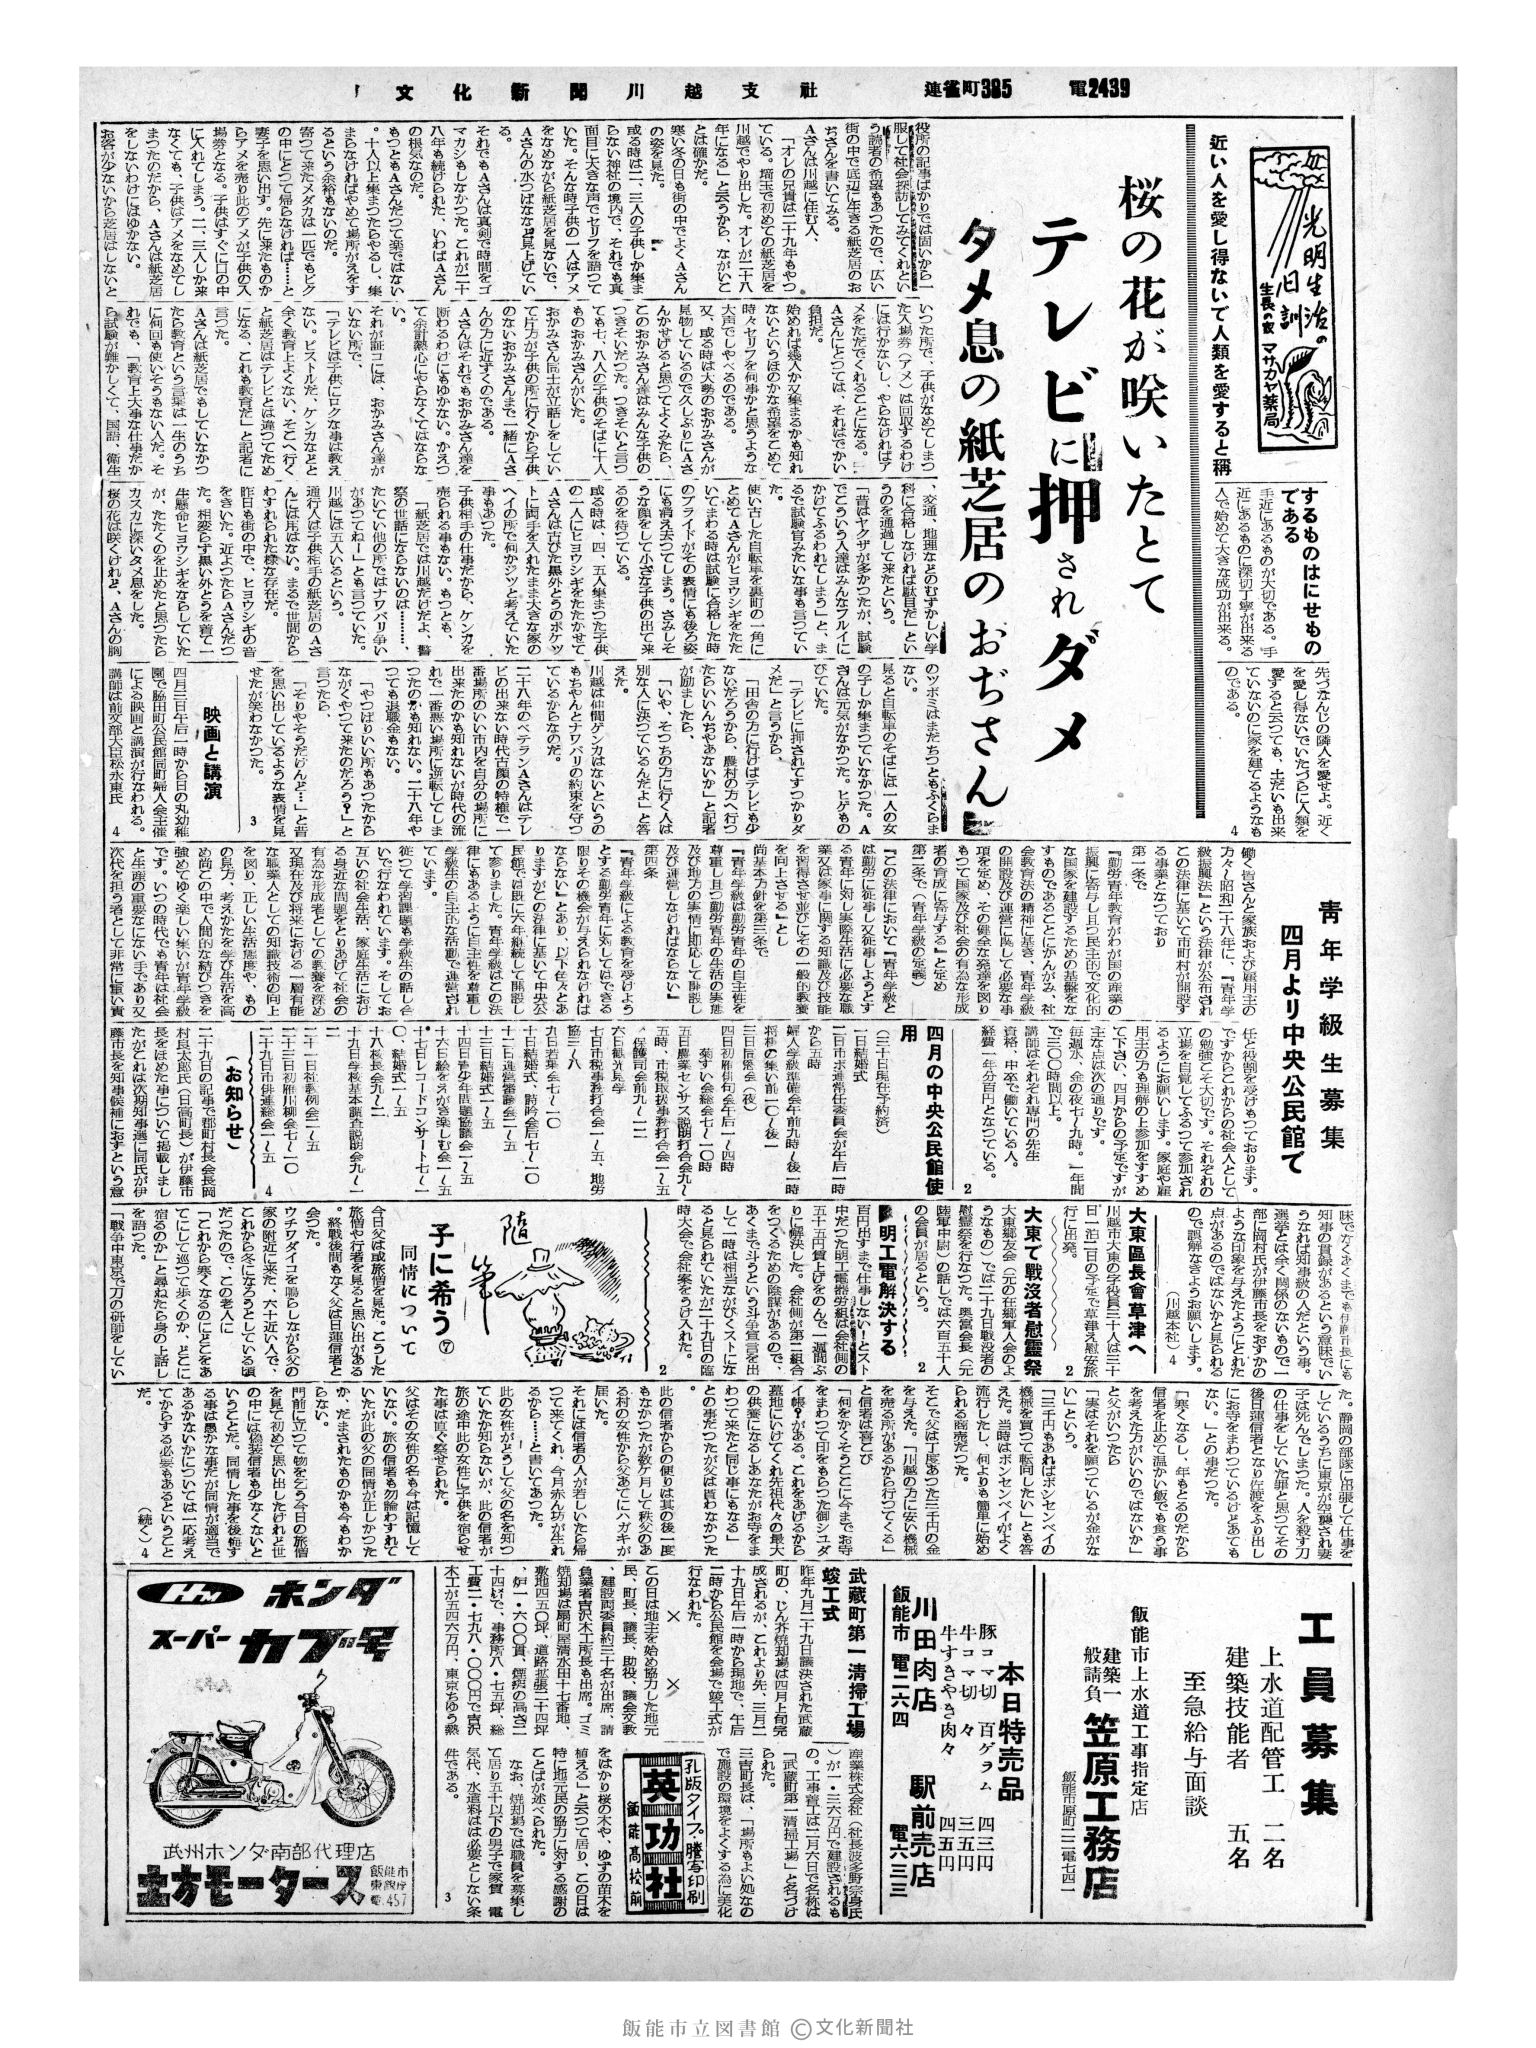 文化新聞川越支社　連雀町385　電2439
光明生治の
日訓
生長の家 マサカヤ薬局
近い人を愛し得ないで人類を愛すると称
するものはにせもの
である
手近にあるものが大切である。手
近にあるものに深切丁寧が出来る
人で始めて大きな成功が出来る。
先づなんじの隣人を愛せよ。近く
を愛し得ないでいたづらに人類を
愛すると云つても、土だいも出来
ていないのに家を建てるようなも
のである。
4
桜の花が咲いたとて
テレビに押されダメ
タメ息の紙芝居のおぢさん
役所の記事ばかりでは固いから一
服して社会探訪してみてくれとい
う読者の希望もあつたので、広い
街の中で底辺に生きる紙芝居のお
ぢさんを書いてみる。
Aさんは川越に住む人、
「オレの兄貴は二十九年もやつ
ている。埼玉で初めての紙芝居を
川越でやり出した。オレが二十八
年になる」と云うから、ながいこ
とは確かだ。
寒い冬の日も街の中でよくAさん
の姿を見た。
或る時は二、三人の子供しか集ま
らない神社の境内で、それでも真
面目に大きな声でセリフを語つて
いた。そんな時子供の一人はアメ
をなめながら紙芝居を見ないで、
Aさんの水つぱななど見上げてい
る。
それでもAさんは真剣で時間をゴ
マカシもしなかつた。これが二十
八年も続けられた、いわばAさん
の根気なのだ。
もつともAさんだつて楽ではない
。十人以上集まつたらやるし、集
まらなければやめて場所がえをす
るという余裕もないのだ。
寄つて来たメダカは一匹でもビク
の中にとつて帰らなければ……と
妻子を思い出す。先に来たものか
らアメを売り此のアメが子供の入
場券となる。子供はすぐに口の中
に入れてしまう。二、三人しか来
なくても、子供はアメをなめてし
まつたのだから、Aさんは紙芝居
をしないわけにはゆかない。
お客が少ないから芝居はしないと
いつた所で、子供がなめてしまつ
た入場券（アメ）は回収するわけ
には行かないし、やらなければア
メをただでくれることになる。
Aさんにとつては、それはでかい
負担だ。
始めれば幾人か又集まるかも知れ
ないというほのかな希望をこめて
時々セリフを何事かと思うような
大声でしやべるのである。
又、或る時は大勢のおかみさんが
見物しているので久しぶりにAさ
んかせげると思つてよくみたら、
このおかみさん達はみんな子供の
つきそいだつた。つきそいと言つ
ても七、八人の子供のそばに十人
ものおかみさんがいた。
おかみさん同士が立話しをしてい
て片方が子供の所に行くから子供
のないおかみさんまで一緒にAさ
んの方に近ずくのである。
Aさんはそれでもおかみさん達を
断わるわけにもゆかない。かえつ
て余計熱心にやらなくてはならな
い。
それが証コには、おかみさん達が
いない所で、
「テレビは子供にロクな事は教え
ない。ピストルだ、ケンカなどと
余く教育上よくない、そこへ行く
と紙芝居はテレビとは違つてため
になる、これも教育だ」と記者に
言つた。
Aさんは紙芝居でもしていなかつ
たら教育という言葉は一生のうち
に何回も使いそうもない人だ。そ
れでも、「教育上大事な仕事だか
ら試験が難かしくて、国語、衛生
、交通、地理などのむずかしい学
科に合格しなければ駄目だ」とい
うのを通過して来たという。
「昔はヤクザが多かつたが、試験
でこういう人達はみんなフルイに
かけてふるわれてしまう」と、ま
るで試験官みたいな事も言つてい
る。
使い古した自転車を裏町の一角に
とめてAさんがヒョウシギをたた
いてまわる時は試験に合格した時
のプライドがその表情にも後ろ姿
にも消え去つてしまう。さみしそ
うな顔をして小さな子供の出て来
るのを待つている。
或る時は、四、五人集まつた子供
の一人にヒョウシギをたたかせて
Aさんは古びた黒外とうのポケツ
トに両手を入れたまま大きな家の
ヘイの所で何かジツと考えていた
事もあつた。
子供相手の仕事だから、ケンカを
売られる事もない。もつとも、
「紙芝居では川越だけだよ、警
察の世話にならないのは………、
たいてい他の所ではナワバリ争い
があつてねー」とも言つていた。
川越には五人いるという。
通行人は子供相手の紙芝居のAさ
んには用はない。まるで世間から
わすれられた様な存在だ。
昨日も街の中で、ヒョウシギの音
をきいた。近よつたらAさんだつ
た。相変らず黒い外とうを着て一
生懸命ヒョウシギをならしていた
が、たたくのを止めたと思つたら
カスカに深いタメ息をした。
桜の花は咲くけれど、Aさんの胸
のツボミはまだちつともふくらま
ない。
見ると自転車のそばには一人の女
の子しか集まつていなかつた。A
さんは元気がなかつた。ヒゲもの
びていた。
「テレビに押されてすつかりダ
メだ」と言うから、
「田舎の方に行けばテレビも少
ないだろうから、農村の方へ行つ
たらいいんぢやあないか」と記者
が励ましたら、
「いや、そつちの方に行く人は
別な人に決つているんだよ」と答
えた。
川越は仲間ゲンカはないというの
もちやんとナワバリの約束を守つ
ているからなのだ。
二十八年のベテランAさんはテレ
ビの出来ない時代古顔の特権で一
番場所のいい市内を自分の場所に
出来たのかも知れないが時代の流
れで一番悪い場所に逆転してしま
つたのかも知れない。二十八年や
つても退職金もない。
「やつぱりいい所もあつたから
ながくやつて来たのだろう？と
言つたら、
「そりやそうだけんど…」と昔
を思い出しているような表情を見
せたが笑わなかつた。
3
映画と講演
四月三日午后一時から日の丸幼稚
園で脇田町公民館同町婦人会主催
による映画と講演が行なわれる。
講師は前文部大臣松永東氏
4
青年学級生募集
四月より中央公民館で
働く皆さんと家族および雇用主の
方々へ昭和二十八年に、『青年学
級振興法』という法律が公布され
この法律に基いて市町村が開設す
る事業となつており
第一条で
『勤労青年教育がわが国の産業の
振興に寄与し且つ民主的で文化的
な国家を建設するための基盤をな
すものであることにかんがみ、社
会教育法の精神に基き、青年学級
の開設及び運営に関して必要な事
項を定め、その健全な発達を図り
もつて国家及び社会の有為な形成
者の育成に寄与する』と定め
第二条で（青年学級の定義）
『この法律において『青年学級と
は勤労に従事し又従事しようとす
る青年に対し実際生活に必要な職
業又は家事に関する知識及び技能
を習得させ並びにその一般的教養
を向上させる』とし
尚基本方針を第三条で
『青年学級は勤労青年の自主性を
尊重し且つ勤労青年の生活の実態
及び地方の実情に即応して開設し
及び運営しなければならない』
第四条
『青年学級による教育を受けよう
とする勤労青年に対してはできる
限りその機会が与えられなければ
ならない』とあり、以下色々とあ
りますがこの法律に基いて中央公
民館では既に六年継続して開設し
て参りました。青年学級はこの法
律にもあるように自主性を尊重し
学級生の自主的な活動で運営され
ています。
従つて学習課題も学級生の話し合
いで行なわれています。そしてお
互いの社会生活、家庭生活におけ
る身近な問題をとりあげて社会の
有為な形成者としての教養を深め
又現在及び将来における一層有能
な職業人としての知識技術の向上
を図り、正しい生活態度や、もの
の見方、考えかたを学び生活を高
め尚この中で人間的な結びつきを
強めてゆく楽しい集いが青年学級
です。いつの時代でも青年は社会
と生産の重要なにない手であり又
次代を担う者として非常に重い責
任と役割を受けもつております。
ですからこれからの社会人として
の勉強こそ大切です。それぞれの
立場を自覚してふるつて参加され
るようにお願いします。家庭や雇
用主の方も理解の上参加をすすめ
て下さい。四月からの予定ですが
主な点は次の通りです。
毎週水、金の夜七ー九時。一年間
で三〇〇時間以上。
講師はそれぞれ専門の先生
資格、中卒で働いている人。
経費一年分百円となつている。
2
四月の中央公民館使
用
（三十日現在予約済）
一日結婚式
二日市ボ連常任委員会が午后一時
から五時
婦人学級準備会午前九時ー後一時
将棋の集い前一〇ー後一
三日辰悠会（夜）
四日初雁俳句会午后一ー四時
菊すい会総会七ー一〇時
五日農業センサス説明打合会九ー
五時、市税取扱事務打合会一ー五
、保護司会前九ー一二
六日観光見学
七日市税事務打合会一ー五、地労
協三ー八
九日若葉会七ー一〇
十日結婚式、詩吟会后七ー一〇
十一日運営審議会二ー五
十三日結婚式一ー五
十四日青少年問題協議会一ー五
十六日絵をえがき楽しむ会一ー五
十七日レコードコンサート七ー一
〇、結婚式一ー五
十八校長会九ー一二
十九日学校基本調査説明会九ー一
二十一日社教例会二ー五
二十三日初雁川柳会七ー一〇
二十九日市俳連総会一ー五
4
（お知らせ）
二十九日の記事で郡町村長会長岡
村良太郎氏（日高町長）が伊藤市
長をほめた件について掲載しまし
たがこれは次期知事選に同氏が伊
藤市長を知事候補におすという意
味でなくあくまでも伊藤市長にも
知事の貫録があるという意味でい
うなれば知事級の人だという事。
選挙とは全く関係のないもので一
部に岡村氏が伊藤市長をおすかの
ような印象を与えたようにとれた
点があるのではないかと見られる
ので誤解なきようお願いします。
（川越本社）4
大東區長會草津へ
川越市大東の字役員三十人は三十
日一泊二日の予定で草津え慰安旅
行に出発。
2
大東で戦沒者慰靈祭
大東郷友会（元の在郷軍人会のよ
うなもの）では二十九日戦没者の
慰霊祭を行なつた。奥富会長（元
陸軍中尉）の話しでは六百五十人
の会員が居るという。
2
明工電解決する
百円出すまで仕事しない！とスト
中だつた明工電器労組は会社側の
五十五円賃上げをのんで一週間ぶ
りに解決した。会社側が第二組合
をつくるための陰謀があるので、
あくまで斗うという斗争宣言を出
して一時は相当ながびくストにな
ると見られていたが二十九日の臨
時大会で会社案をうけ入れた。
2
随筆
子に希う⑦
同情について
今日父は或旅僧を見た。こうした
旅僧や行者を見ると思い出がある
。終戦後間もなく父は日蓮信者と
会つた。
ウチワダイコを鳴らしながら父の
家の附近に来た、六十近い人で、
これから冬になろうとしている頃
だつたので、この老人に
「これから寒くなるのにどこをあ
てにして巡つて歩くのか、どこに
宿るのか」と尋ねたら身の上話し
を語つた。
「戦争中東京で刀の研師をしてい
た。静岡の部隊に出張して仕事を
しているうちに東京が空襲され妻
子は死んでしまつた。人を殺す刀
の仕事をしていた罪と思つてその
後日蓮信者となり佐渡をふり出し
にお寺をまわつているけどあても
ない。」との事だつた。
「寒くなるし、年もとるのだから
信者を止めて温かい飯でも食う事
を考えた方がいいのではないか」
と父がいつたら
「実はそれを願つているが金がな
い」という。
「三千円もあればポンセンベイの
機械を買つて転向したい」とも答
えた。当時はポンセンベイがよく
流行したし、何よりも簡単に始め
られる商売だつた。
そこで父は丁度あつた三千円の金
を与えた。「川越の方に安い機械
を売る所があるから行つてくる」
と信者は喜こび
「何をかくそうここに今までお寺
をまわつて印をもらつた御シユダ
イ帳？がある。これをあげるから
墓地にいけてくれ先祖代々の最大
の供養になるしあなたがお寺をま
わつて来たと同じ事にもなる」
との事だつたが父は貰わなかつた
。
此の信者からの便りは其の後一度
もなかつたが数ケ月して秩父のあ
る村の女性から父あてにハガキが
届いた。
それには信者の人が若しいたら帰
つて来てくれ、今月赤ん坊が生れ
るから……と書いてあつた。
此の女性がどうして父の名を知つ
ていたか知らないが、此の信者が
旅の途中此の女性に子供を宿らせ
た事は直ぐ察せられた。
父はその女性の名も今は記憶して
いない。旅の信者も勿論わすれて
いたが此の父の同情が正しかつた
か、だまされたものかも今もわか
らない。
門前に立つて物を乞う今日の旅僧
を見て初めて思い出したけれど世
の中には偽装信者も少なくないと
いうことだ。同情した事を後悔す
る事は愚かな事だが同情が適当で
あるかないかについては一応考え
てからする必要もあるということ
だ。
（続く）4
工員募集
上水道配管工　二名
建築技能者　五名
至急給与面談
飯能市上水道工事指定店
建築一般請負
笠原工務店
飯能市原町二二電七四一
本日特売品
豚コマ切　百グラム　四三円
牛コマ切　々　三五円
牛すきやき肉　々　四五円
川田肉店　駅前売店
飯能市　電二六四　電六三三
武蔵町第一清掃工場
竣工式
昨年九月二十九日議決された武蔵
町の、じん芥焼却場は四月上旬完
成されるが、これより先、三月二
十九日午后一時から現地で、午后
二時から公民館を会場で竣工式が
行なわれた。
×　×
この日は地主を始め協力した地元
民、町長、議長、助役、議会文教
、建設両委員約三十名が出席、請
負業者吉沢木工所長も出席。ゴミ
焼却場は扇町屋清水田十七番地、
敷地四五〇坪、道路拡張二十四坪
、炉一・六〇〇貫、煙突の高さ二
十四㍍で、事務所八・七五坪、総
工費二・七九八・〇〇〇円で吉沢
木工が五四六万円、東京ちゆう熱
産業株式会社（社長波多野宗身氏
）が一・三六万円で建設されるも
の。工事着工は二月六日で名称は
「武蔵町第一清掃工場」と名づけ
られた。
三吉町長は、「場所もよい処なの
で施設の環境をよくする為に美化
をはかり桜の木や、ゆずの苗木を
植える」と云つて居り、この日は
特に地元民の協力に対する感謝の
ことばが述べられた。
なお、焼却場では職員を募集し
て居り五十以下の男子で家賃　電
気代、水道料はは必要としない条
件である。
3
孔版タイプ・謄写印刷
英功社
飯能高校前
HM　ホンダ
スーパーカブ号
武州ホンダ南部代理店
土方モータース
飯能市
東銀座
電.457
飯能市立図書館 ©文化新聞社